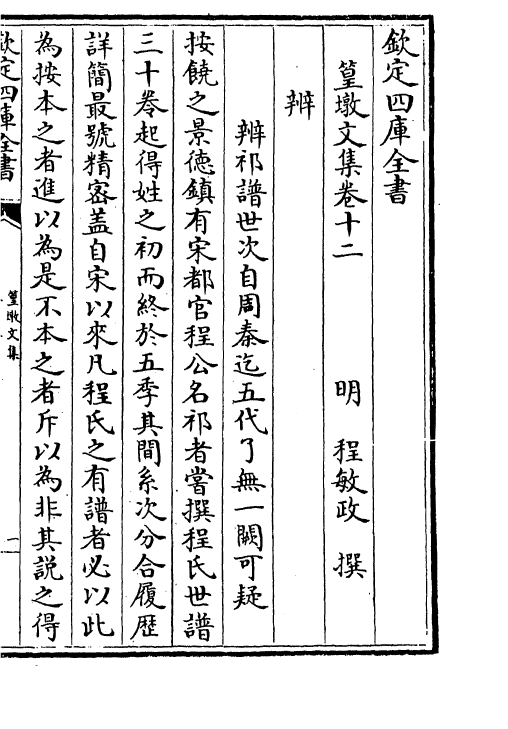 欽定四庫全書
篁墩文集卷十二
明 程敏政 撰
辨
辨祁譜世次自周秦迄五代了無一闕可疑
按饒之景德鎮有宋都官程公名祁者嘗撰程氏世譜
三十卷起得姓之初而終於五季其間系次分合履歷
詳簡最號精密盖自宋以來凡程氏之有譜者必以此
為按本之者進以為是不本之者斥以為非其説之得
欽定四庫全書
篁墩文集
一